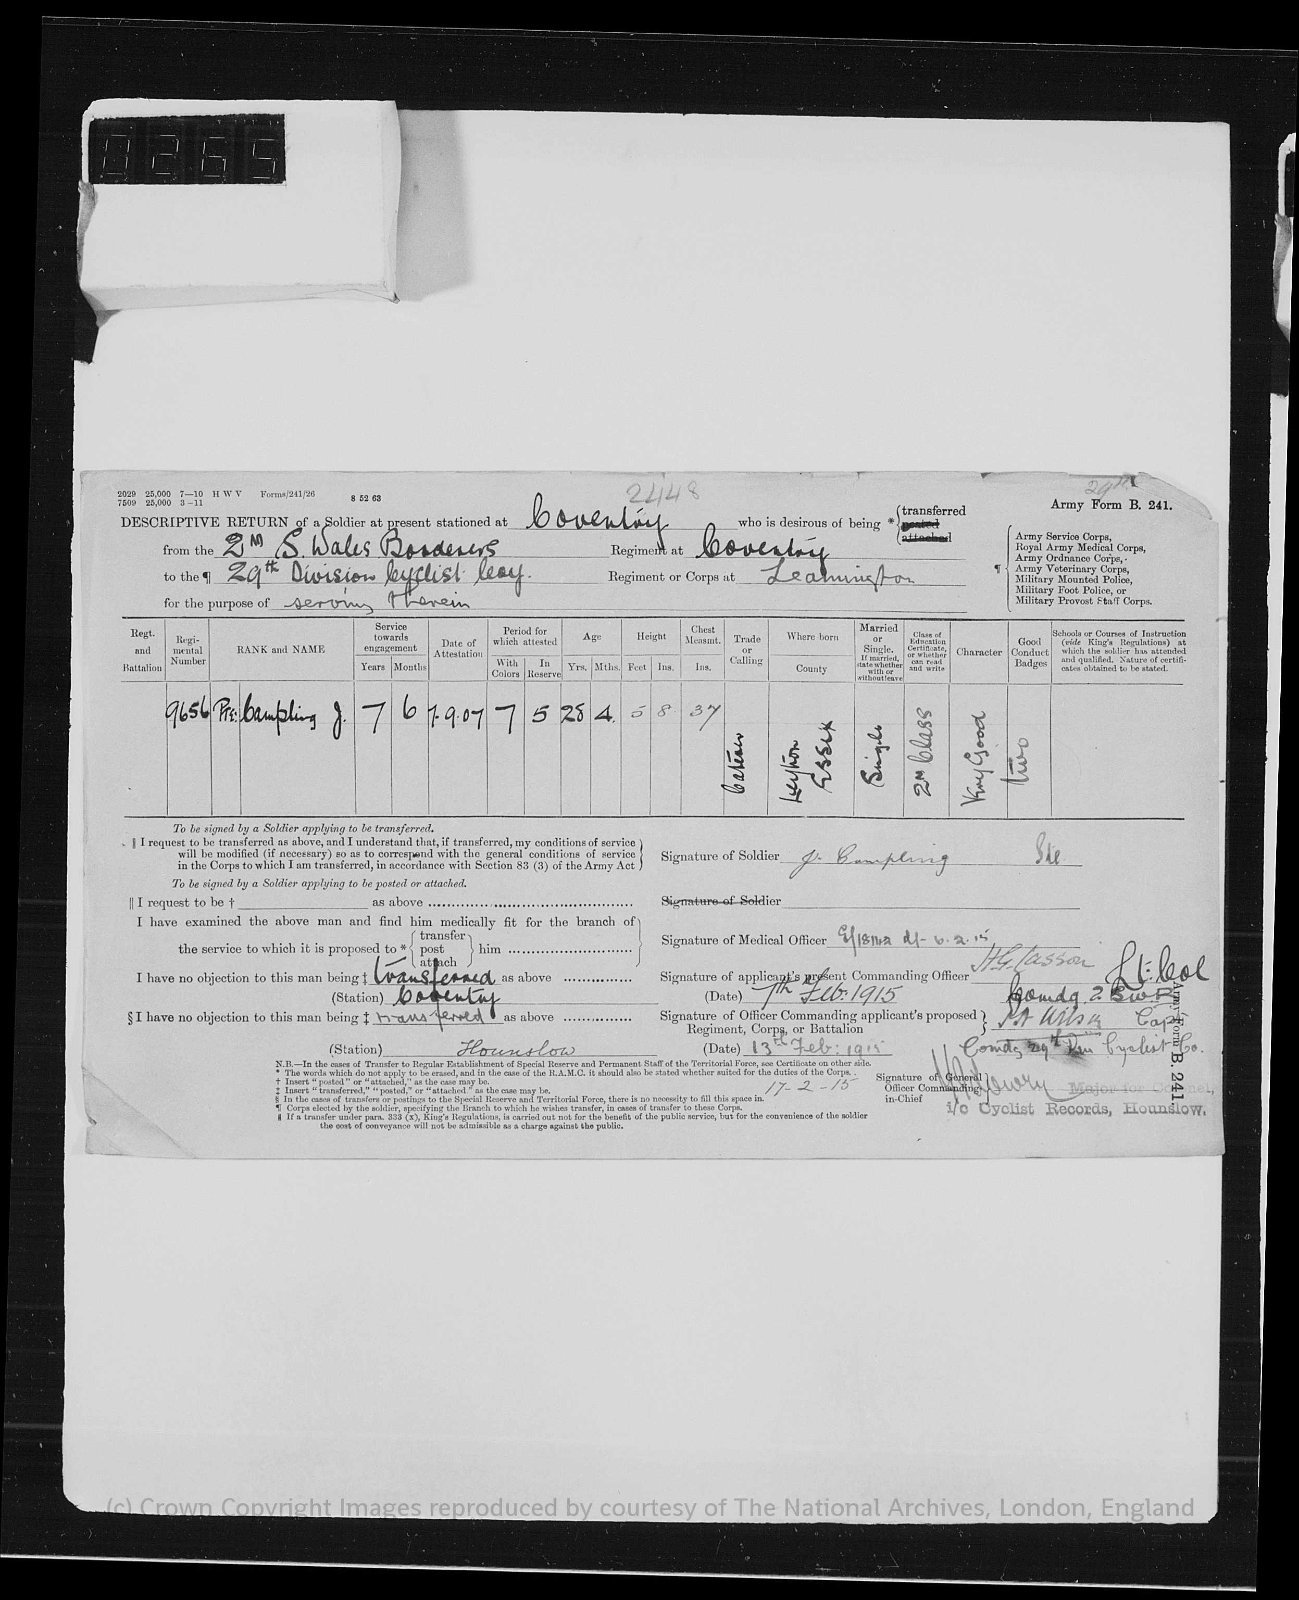 0265
2029 25,000 7—10 H W V Forms/241/26
7509 25,000 3—11
8 52 63
2448
29th
Army Form B. 241.
DESCRIPTIVE RETURN of a Soldier at present stationed at Coventry who is desirous of being * { transferred posted attached
from the 2nd S. Wales Borderers Regiment at Coventry
to the ¶ 29th Division Cyclist Coy. Regiment or Corps at Leamington
for the purpose of serving therein
¶ { Army Service Corps,
Royal Army Medical Corps,
Army Ordnance Corps,
Army Veterinary Corps,
Military Mounted Police,
Military Foot Police, or
Military Provost Staff Corps.
Regt. and Battalion
Regimental Number
RANK and NAME
Service towards engagement
Years Months
Date of Attestation
Period for which attested
With Colors In Reserve
Age
Yrs. Mths.
Height
Feet Ins.
Chest Measmt.
Ins.
Trade or Calling
Where born
County
Married or Single. If married, state whether with or without leave
Class of Education Certificate, or whether can read and write
Character
Good Conduct Badges
Schools or Courses of Instruction (vide King's Regulations) at which the soldier has attended and qualified. Nature of certificates obtained to be stated.
9656 Pte: Campling J. 7 6 7.9.07 7 5 28 4 5 8 37
Leyton Essex Single 2nd Class Very Good Two
To be signed by a Soldier applying to be transferred.
‖ I request to be transferred as above, and I understand that, if transferred, my conditions of service
will be modified (if necessary) so as to correspond with the general conditions of service
in the Corps to which I am transferred, in accordance with Section 83 (3) of the Army Act }
Signature of Soldier J. Campling Pte
To be signed by a Soldier applying to be posted or attached.
‖ I request to be † as above
Signature of Soldier
I have examined the above man and find him medically fit for the branch of
the service to which it is proposed to * { transfer post attach } him
Signature of Medical Officer 6.2.15
I have no objection to this man being ‡ transferred as above
Signature of applicant's present Commanding Officer H.G. Casson Lt: Col
(Station) Coventry (Date) 7th Feb: 1915 Comdg 2 SWB
§ I have no objection to this man being ‡ transferred as above
Signature of Officer Commanding applicant's proposed Regiment, Corps, or Battalion } Capt
(Station) Hounslow (Date) 13th Feb: 1915 Comdg 29th Div Cyclist Co.
N.B.—In the cases of Transfer to Regular Establishment of Special Reserve and Permanent Staff of the Territorial Force, see Certificate on other side.
* The words which do not apply to be erased, and in the case of the R.A.M.C. it should also be stated whether suited for the duties of the Corps.
† Insert "posted" or "attached," as the case may be.
‡ Insert "transferred," "posted," or "attached" as the case may be.
§ In the cases of transfers or postings to the Special Reserve and Territorial Force, there is no necessity to fill this space in.
¶ Corps elected by the soldier, specifying the Branch to which he wishes transfer, in cases of transfer to these Corps.
‖ If a transfer under para. 333 (x), King's Regulations, is carried out not for the benefit of the public service, but for the convenience of the soldier
the cost of conveyance will not be admissible as a charge against the public.
17-2-15
Signature of General Officer Commanding-in-Chief
Major for Colonel,
i/c Cyclist Records, Hounslow.
Army Form B. 241.
(c) Crown Copyright Images reproduced by courtesy of The National Archives, London, England